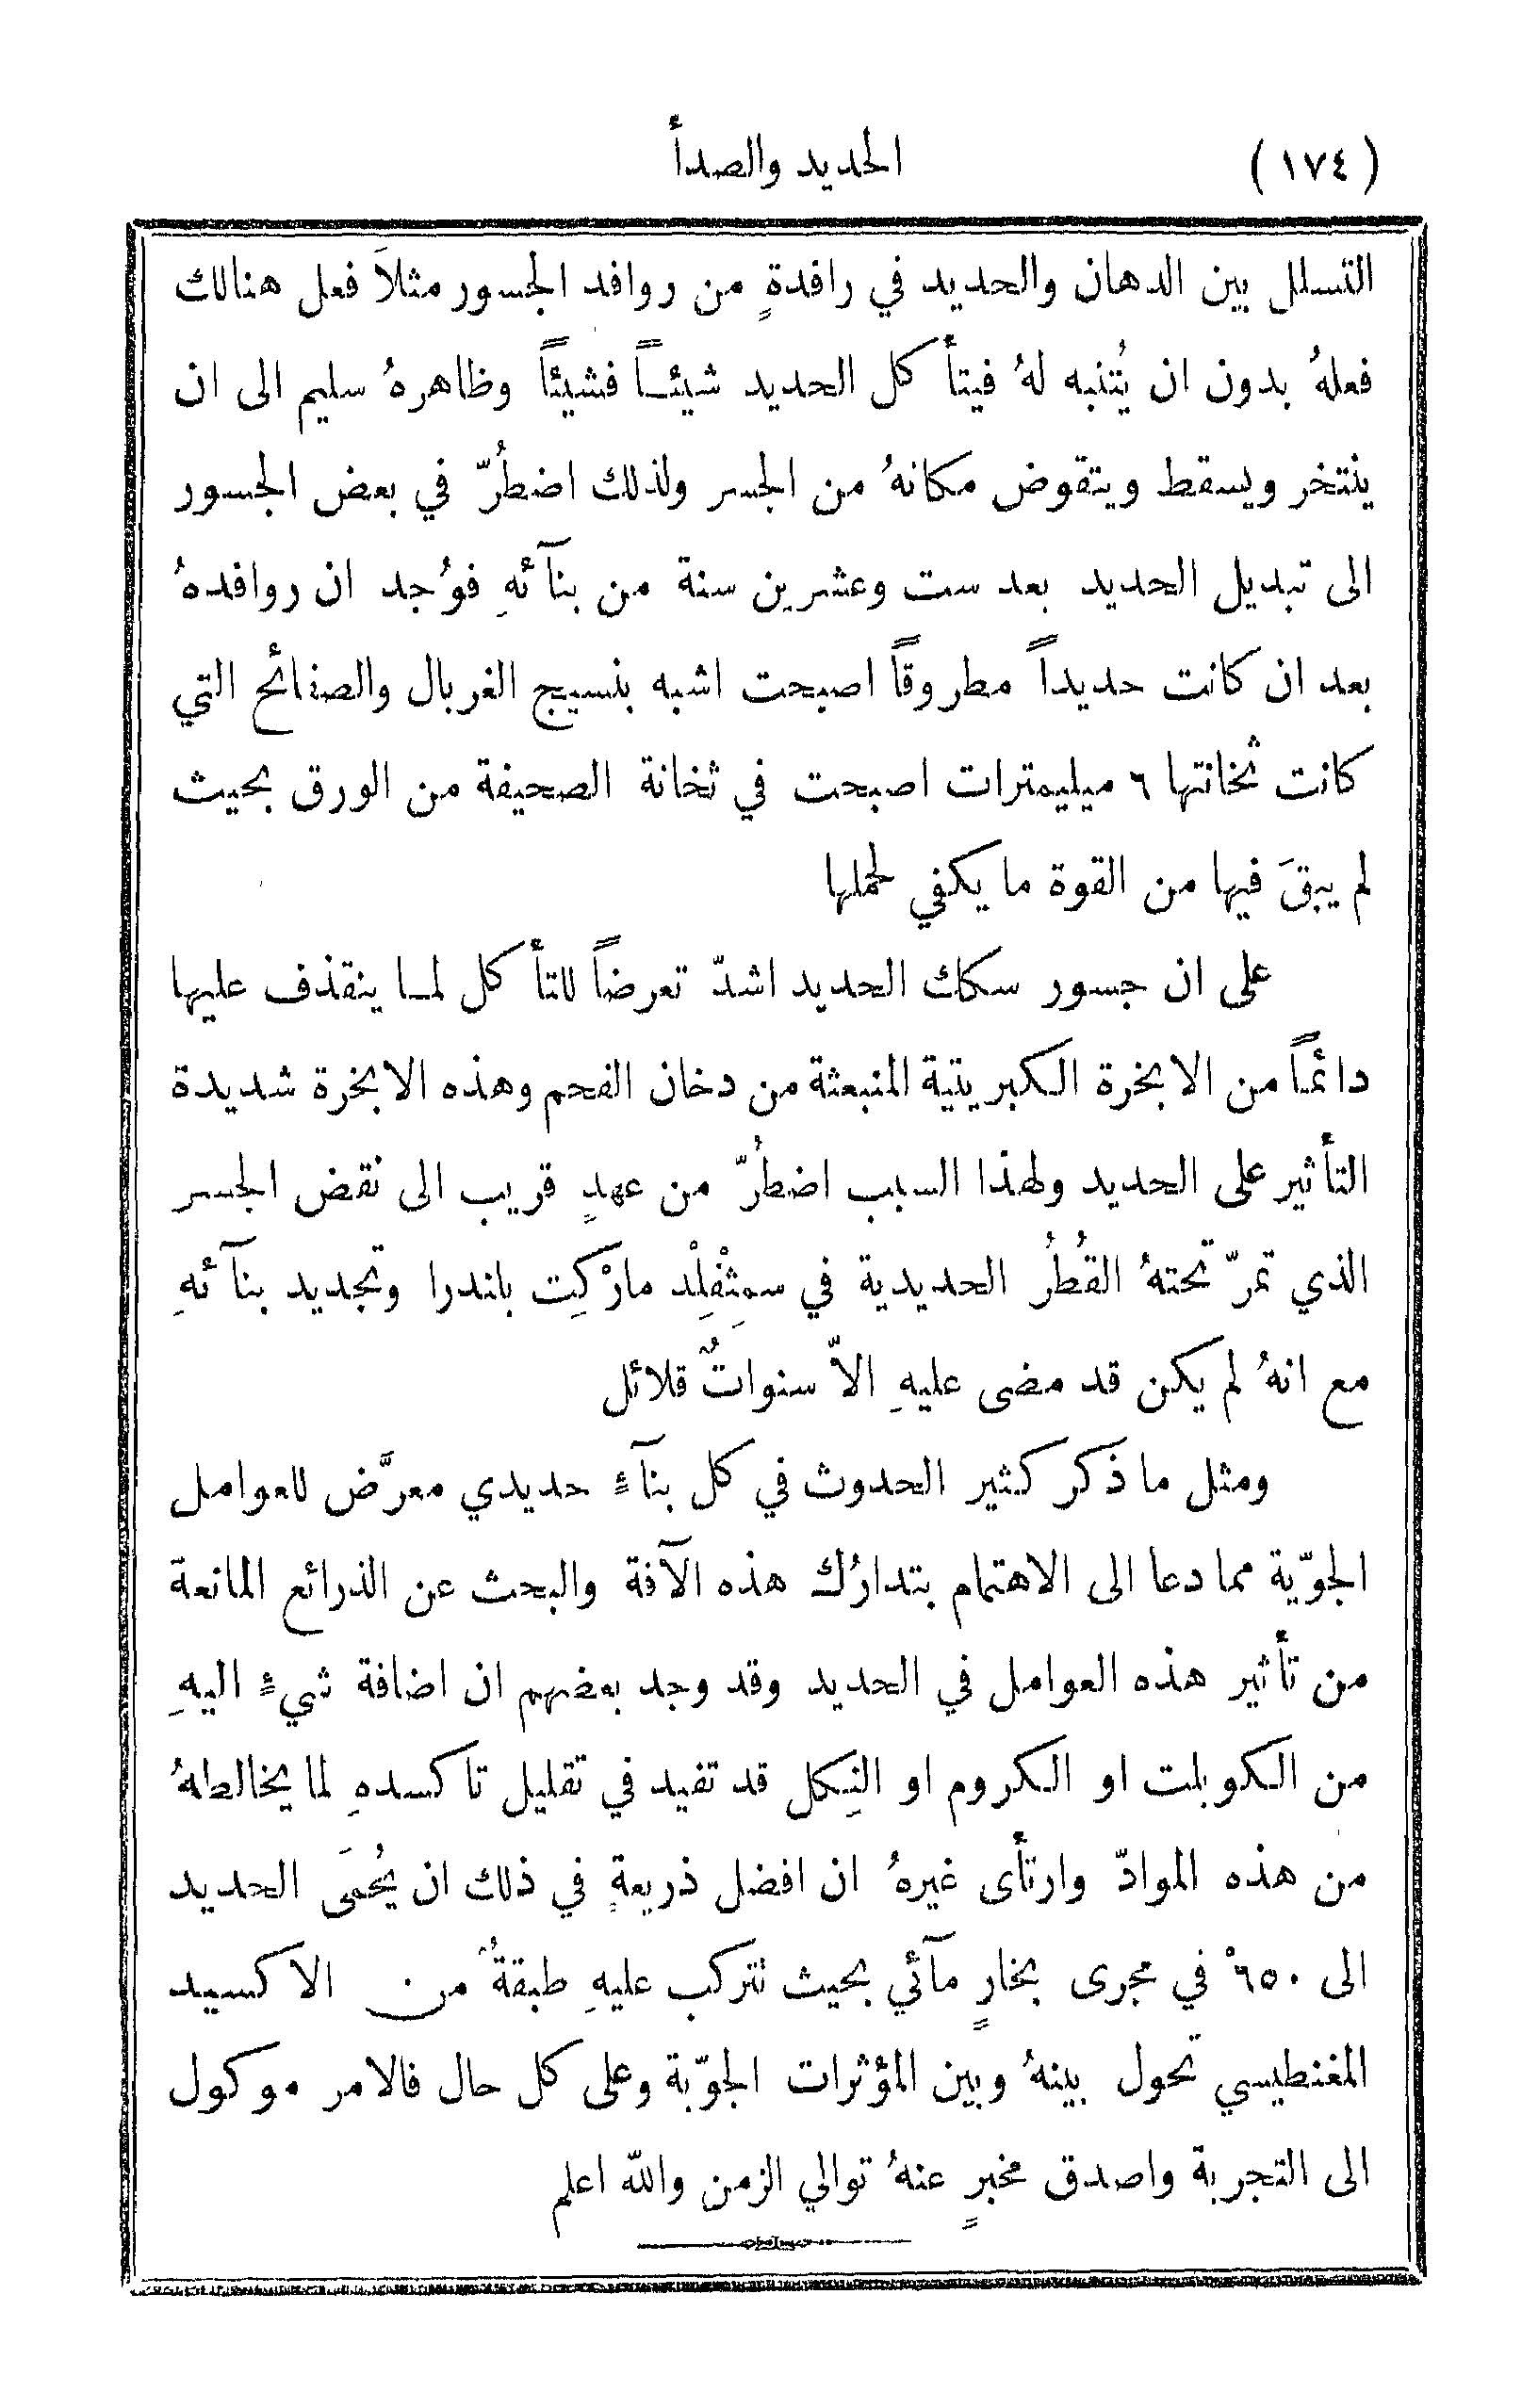 (١٧٤) الحديد والصدأ
التسلل بين الدهان والحديد في رافدةٍ من روافد الجسور مثلاً فعل هنالك
فعلهُ بدون ان يُتنبه لهُ فيتأكل الحديد شيئـاً فشيئاً وظاهرهُ سليم الى ان
ينتخر ويسقط ويتقوض مكانهُ من الجسر ولذلك اضطُرّ في بعض الجسور
الى تبديل الحديد بعد ست وعشرين سنة من بنآئهِ فوُجد ان روافدهُ
بعد ان كانت حديداً مطروقاً اصبحت اشبه بنسيج الغربال والصفائح التي
كانت ثخانتها ٦ ميليمترات اصبحت في ثخانة الصحيفة من الورق بحيث
لم يبقَ فيها من القوة ما يكفي لحملها
على ان جسور سكك الحديد اشدّ تعرضاً للتأكل لمـا ينقذف عليها
دائماً من الابخرة الكبريتية المنبعثة من دخان الفحم وهذه الابخرة شديدة
التأثير على الحديد ولهذا السبب اضطُرّ من عهدٍ قريب الى نقض الجسر
الذي تمرّ تحتهُ القُطُر الحديدية في سمِثْفِلِْد مارْكِت بلندرا وتجديد بنآئهِ
مع انهُ لم يكن قد مضى عليهِ الاّ سنواتٌ قلائل
ومثل ما ذكر كثير الحدوث في كل بنآءٍ حديدي معرَّض للعوامل
الجوّية مما دعا الى الاهتمام بتدارُك هذه الآفة والبحث عن الذرائع المانعة
من تأثير هذه العوامل في الحديد وقد وجد بعضهم ان اضافة شيءٍ اليهِ
من الكوبلت او الكروم او النِكل قد تفيد في تقليل تاكسدهِ لما يخالطهُ
من هذه الموادّ وارتأى غيرهُ ان افضل ذريعةٍ في ذلك ان يُحمَى الحديد
الى ٦٥٠° في مجرى بخارٍ مآئي بحيث تتركب عليهِ طبقةٌ من الاكسيد
المغنطيسي تحول بينهُ وبين المؤثرات الجوّية وعلى كل حال فالامر موكول
الى التجربة واصدق مخبرٍ عنهُ توالي الزمن والله اعلم